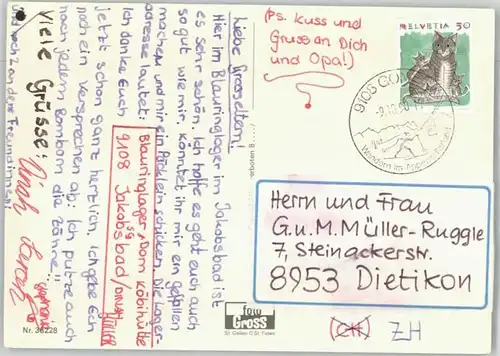 (Ps. Kuss und
Gruss an Dich
und Opa!)
HELVETIA 50
9108 GO
-9.10.90
Wandern im Appenzellerland
Liebe Grosseltern!
Hier im Blauringlager im Jakobsbad ist
es sehr schön. Ich hoffe es geht euch auch
so gut wie mir. Könntet ihr mir ein gefallen
machen und mir ein Päcklein schicken. Die Lager-
adresse lautet:
Blauringlager, Dom Kölbihütte
9108 Jakobsbad/
MÜLLER
Ich danke Euch
jetzt schon ganz herzlich. Ich gebe Ech
noch ein Versprechen ab: Ich putze auch
nach jedem Bombom die Zähne!!
und noch 2 andere Freundinnen
Viele Grüsse:
Herrn und Frau
G.u.M.Müller-Ruggle
7, Steinackerstr.
8953 Dietikon
(CH) ZH
Gross
St. Gallen
Nr. 36228